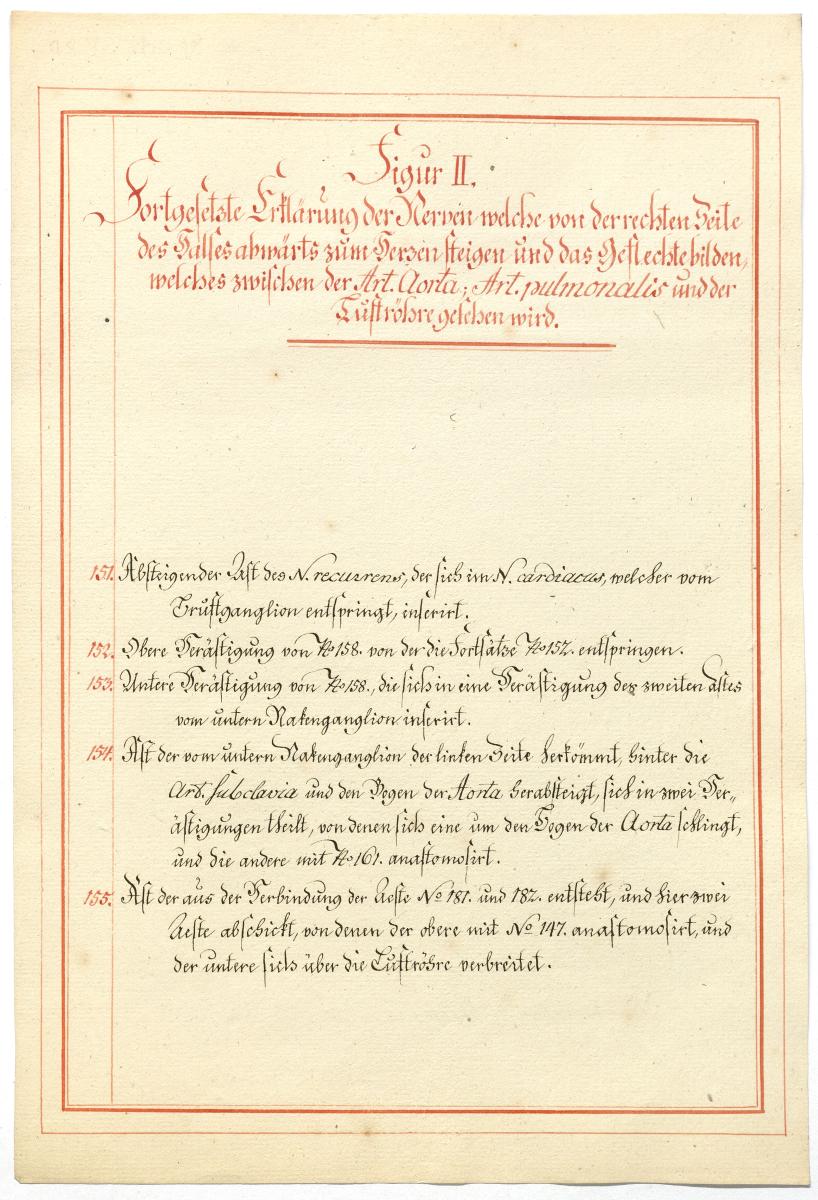 Figur II.
Fortgesetzte Erklärung der Nerven welche von der rechten Seite
des Halses abwärts zum Herzen steigen und das Geflechte bilden,
welches zwischen der Art. Aorta; Art. pulmonalis und der
Luftröhre gesehen wird.
151. Absteigender Ast des N. recurrens, der sich im N. cardiacus, welcher vom
Brustganglion entspringt, inserirt.
152. Obere Verästigung von No 158. von der die Fortsätze No 152. entspringen.
153. Untere Verästigung von No 158., die sich in eine Verästigung des zweiten Astes
vom untern Nakenganglion inserirt.
154. Ast der vom untern Nakenganglion der linken Seite herkömmt, hinter die
Art. subclavia und den Bogen der Aorta herabsteigt, sich in zwei Ver„
ästigungen theilt, von denen sich eine um den Bogen der Aorta schlingt,
und die andere mit No 161. anastomosirt.
155. Ast der aus der Verbindung der Aeste No 181. und 182. entsteht, und hier zwei
Aeste abschickt, von denen der obere mit No 147. anastomosirt, und
der untere sich über die Luftröhre verbreitet.